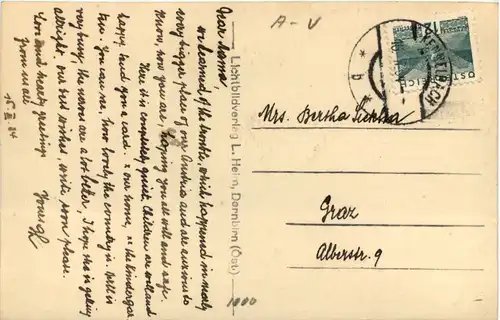 Dear Mama,
we learned of the trouble, which happened in nearly
every bigger place of our Austria and are anxious to
know, how you are, hoping you all well and safe.
Here it is completely quiet. Children are well and
happy, send you a card. x our home, xx the kindergar
ten. You can see, how lovely the country is. Nell is
very busy, the nerves are a lot better, I hope she is getting
allright. Our best wishes, write soon please.
Love and hearty greetings
from us all
Yours
15. II. 34
Lichtbildverlag L. Hein, Dornbirn (Öst.)
A-V
1000
ÖSTERREICH
12
Mrs. Bertha
Graz
Alberstr. 9